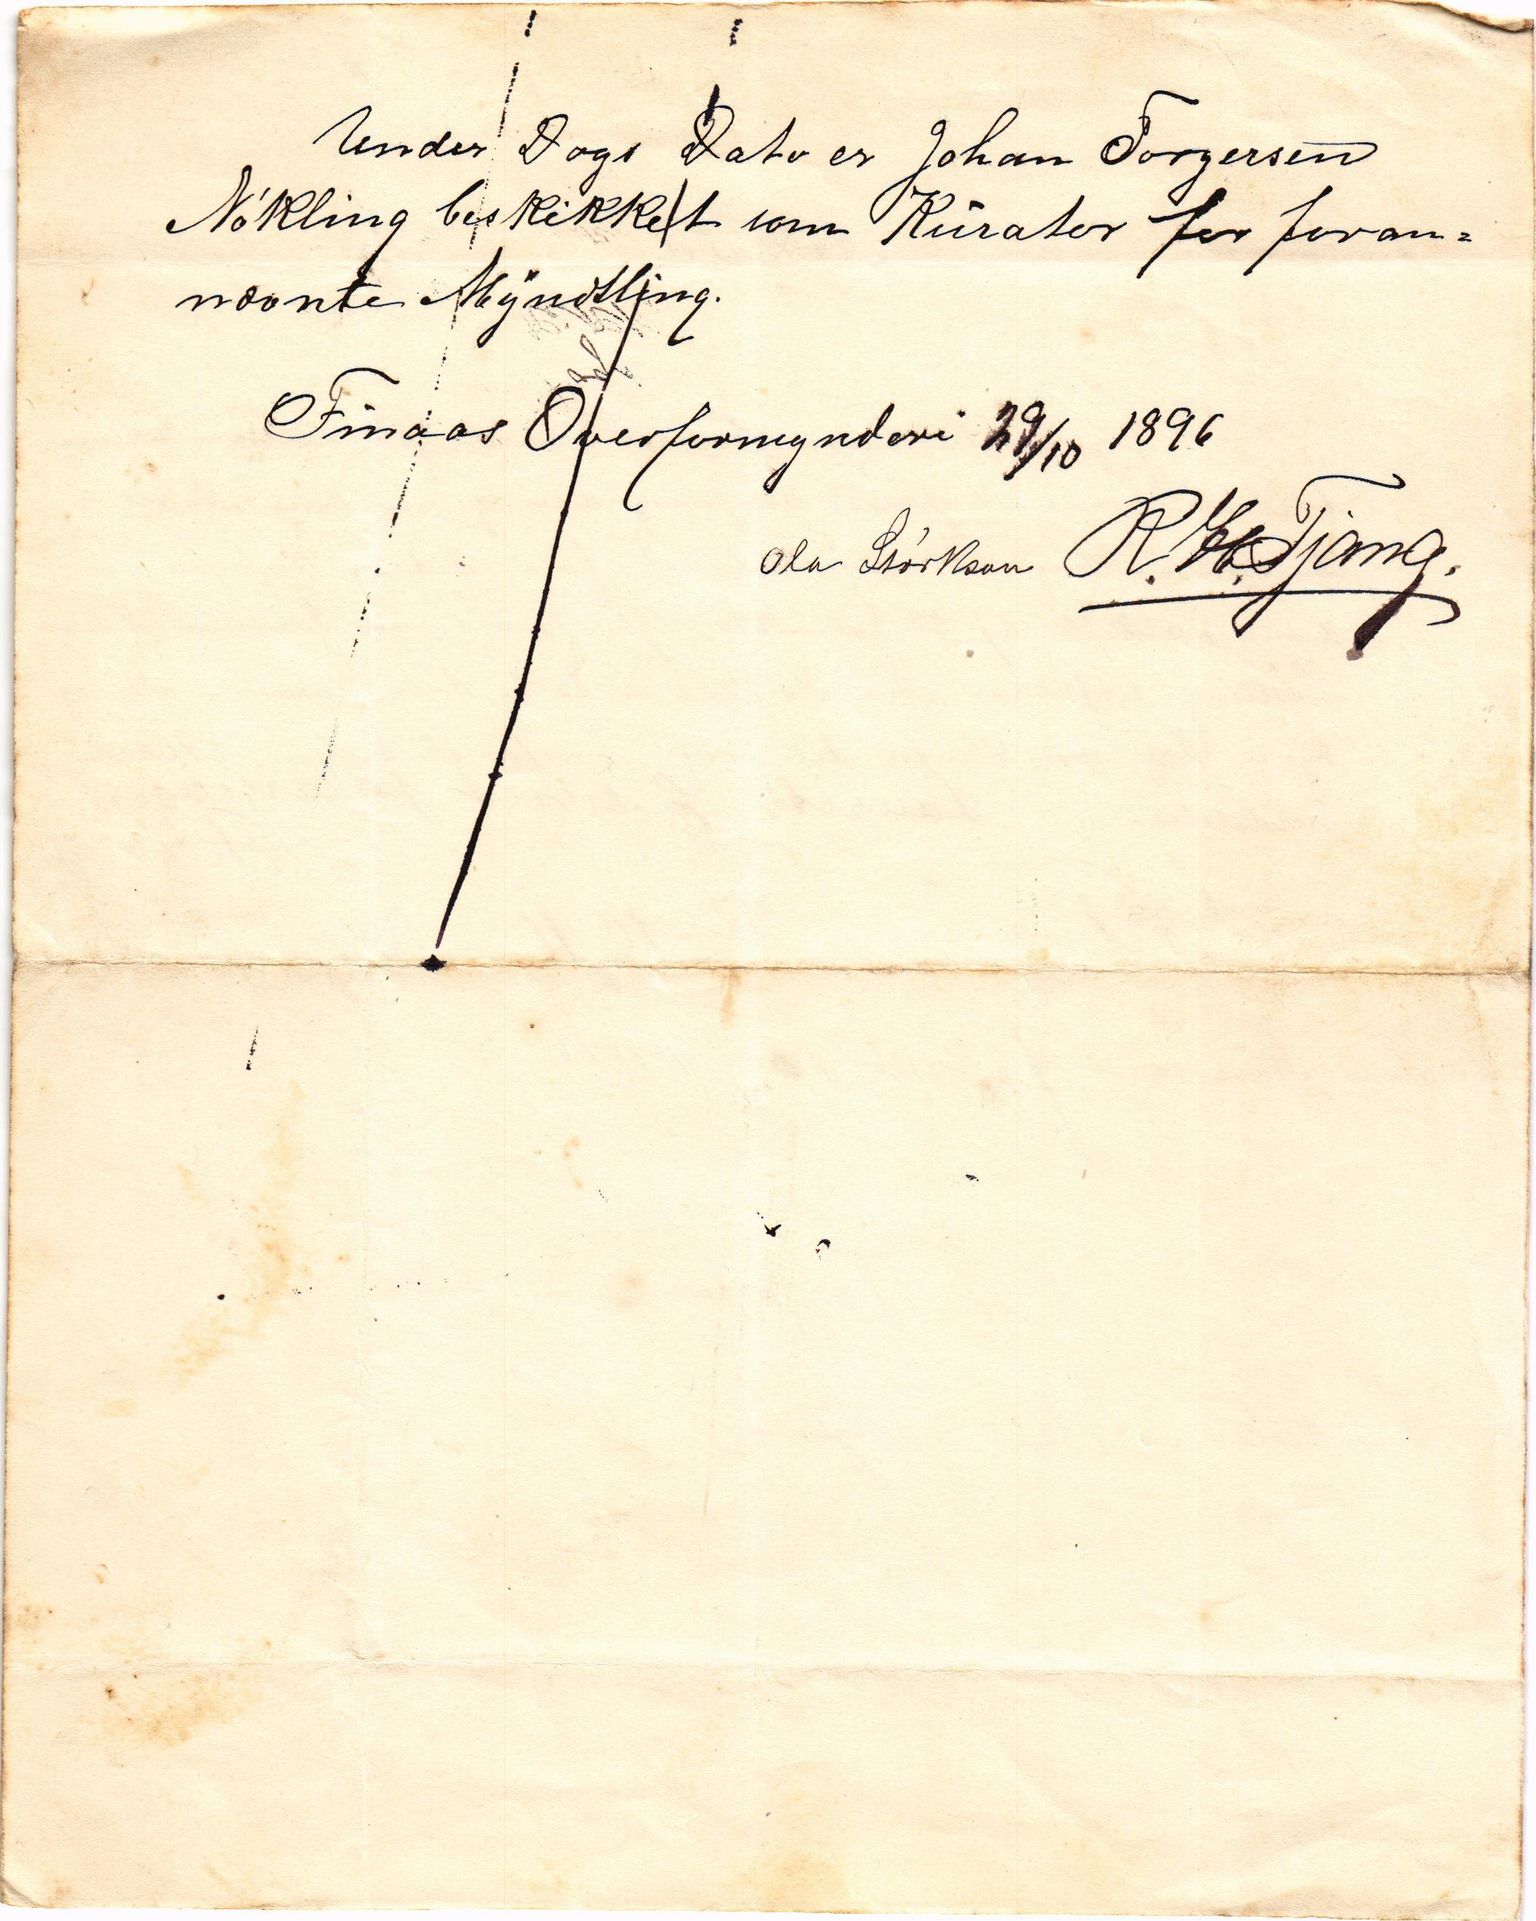 Under Dags Dato er Johan Torgersen
Nökling beskikket som Kurator for foran=
nævnte Myndtling.
Finaas Overformynderi 29/10 1896
Ola Störkson R. H. Tjong.